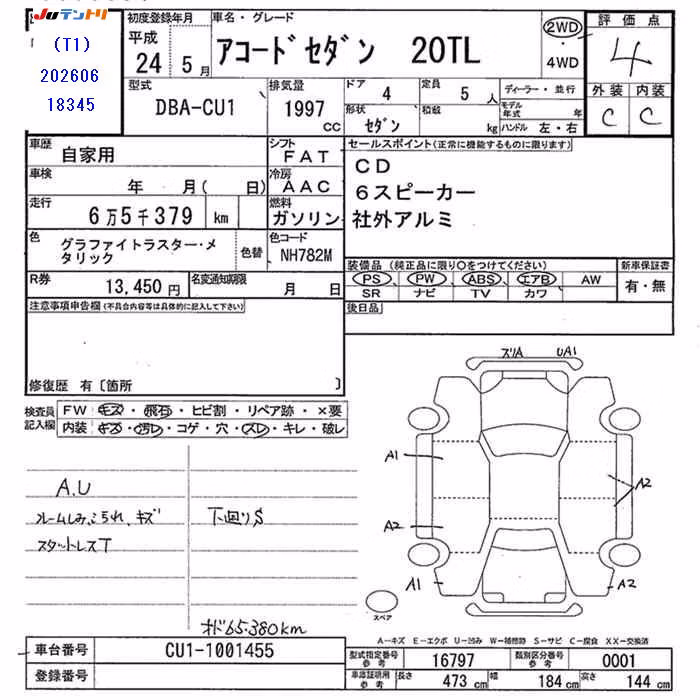 Juテントリ
(T1)
202606
18345
初度登録年月
平成
24 5月
車名・グレード
アコードセダン 20TL
2WD
・
4WD
評価点
4
外装 内装
C C
型式
DBA-CU1
排気量
1997
CC
ドア 4
定員 5 人
形状 セダン
積載 kg
ディーラー・並行
モデル年式 年
ハンドル 左・右
車歴
自家用
シフト
FAT
車検
年 月( 日)
冷房
AAC
走行
6万5千379 km
燃料
ガソリン
色
グラファイトラスター・メタリック
色替
色コード
NH782M
R券
13,450 円
名変通知期限
月 日
セールスポイント(正常に機能するものに限ります)
CD
6スピーカー
社外アルミ
装備品 (純正品に限り〇をつけてください)
PS PW ABS エアB AW
SR ナビ TV カワ
新車保証書
有・無
後日品
注意事項申告欄(不具合内容等は具体的に記入して下さい)
修復歴 有〔箇所 〕
検査員
記入欄
FW キズ・飛石・ヒビ割・リペア跡・×要
内装 キズ・汚レ・コゲ・穴・スレ・キレ・破レ
A.U
ルームしみ、こうれ、キズ
スタットレスT
下廻りS
オド65.380km
ズリA UA1
A1
A2
A2
A1
A2
スペア
A-キズ E-エクボ U-凹み W-補修跡 S-サビ C-腐食 XX-交換済
車台番号 CU1-1001455
登録番号
型式指定番号
参考
16797
類別区分番号
参考
0001
車庫証明用
参考
長さ 473 cm
幅 184 cm
高さ 144 cm